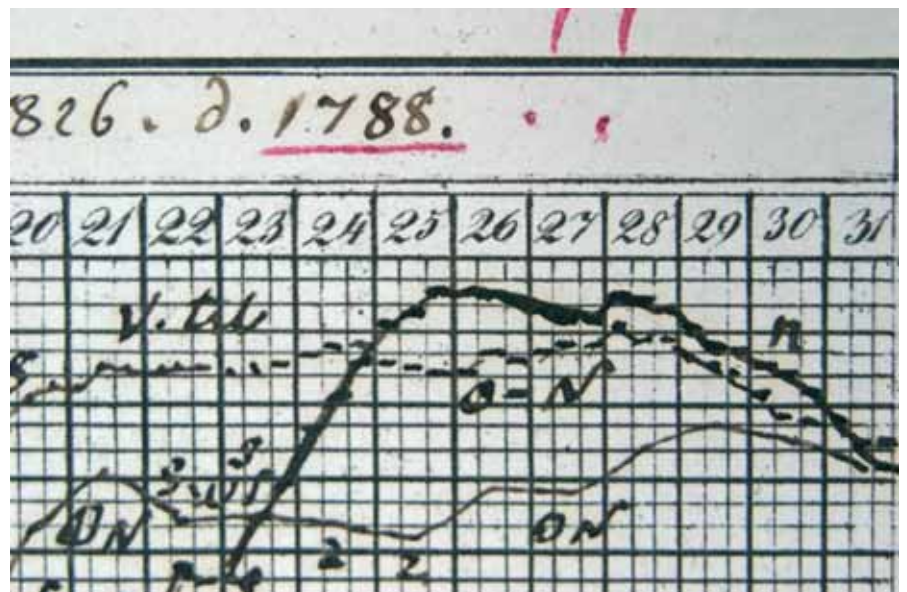 826. d. 1788.
20 21 22 23 24 25 26 27 28 29 30 31
n
O-N
ON
ON
2 2